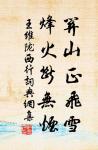 關山正飛雪
烽火斷無煙
王維隴西行詞典網集